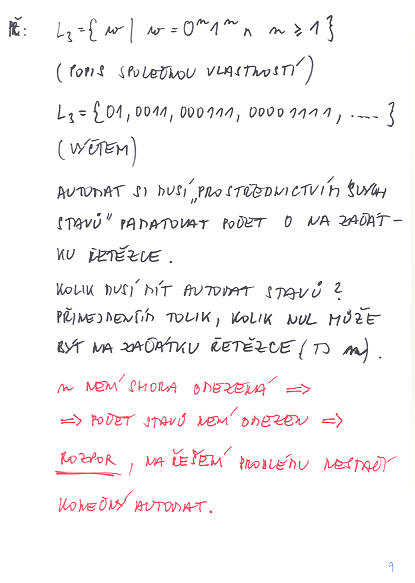 PŘ: L₃={ w | w = 0ⁿ1ⁿ ∧ n ≥ 1 }
(POPIS SPOLEČNOU VLASTNOSTÍ)
L₃={01, 0011, 000111, 00001111, .... }
(VÝČTEM)
AUTOMAT SI MUSÍ „PROSTŘEDNICTVÍM SVÝCH
STAVŮ" PAMATOVAT POČET 0 NA ZAČÁT-
KU ŘETĚZCE.
KOLIK MUSÍ MÍT AUTOMAT STAVŮ?
PŘINEJMENŠÍM TOLIK, KOLIK NUL MŮŽE
BÝT NA ZAČÁTKU ŘETĚZCE (TJ n).
n NENÍ SHORA OMEZENÁ =>
=> POČET STAVŮ NENÍ OMEZEN =>
ROZPOR, NA ŘEŠENÍ PROBLÉMU NESTAČÍ
KONEČNÝ AUTOMAT.
9